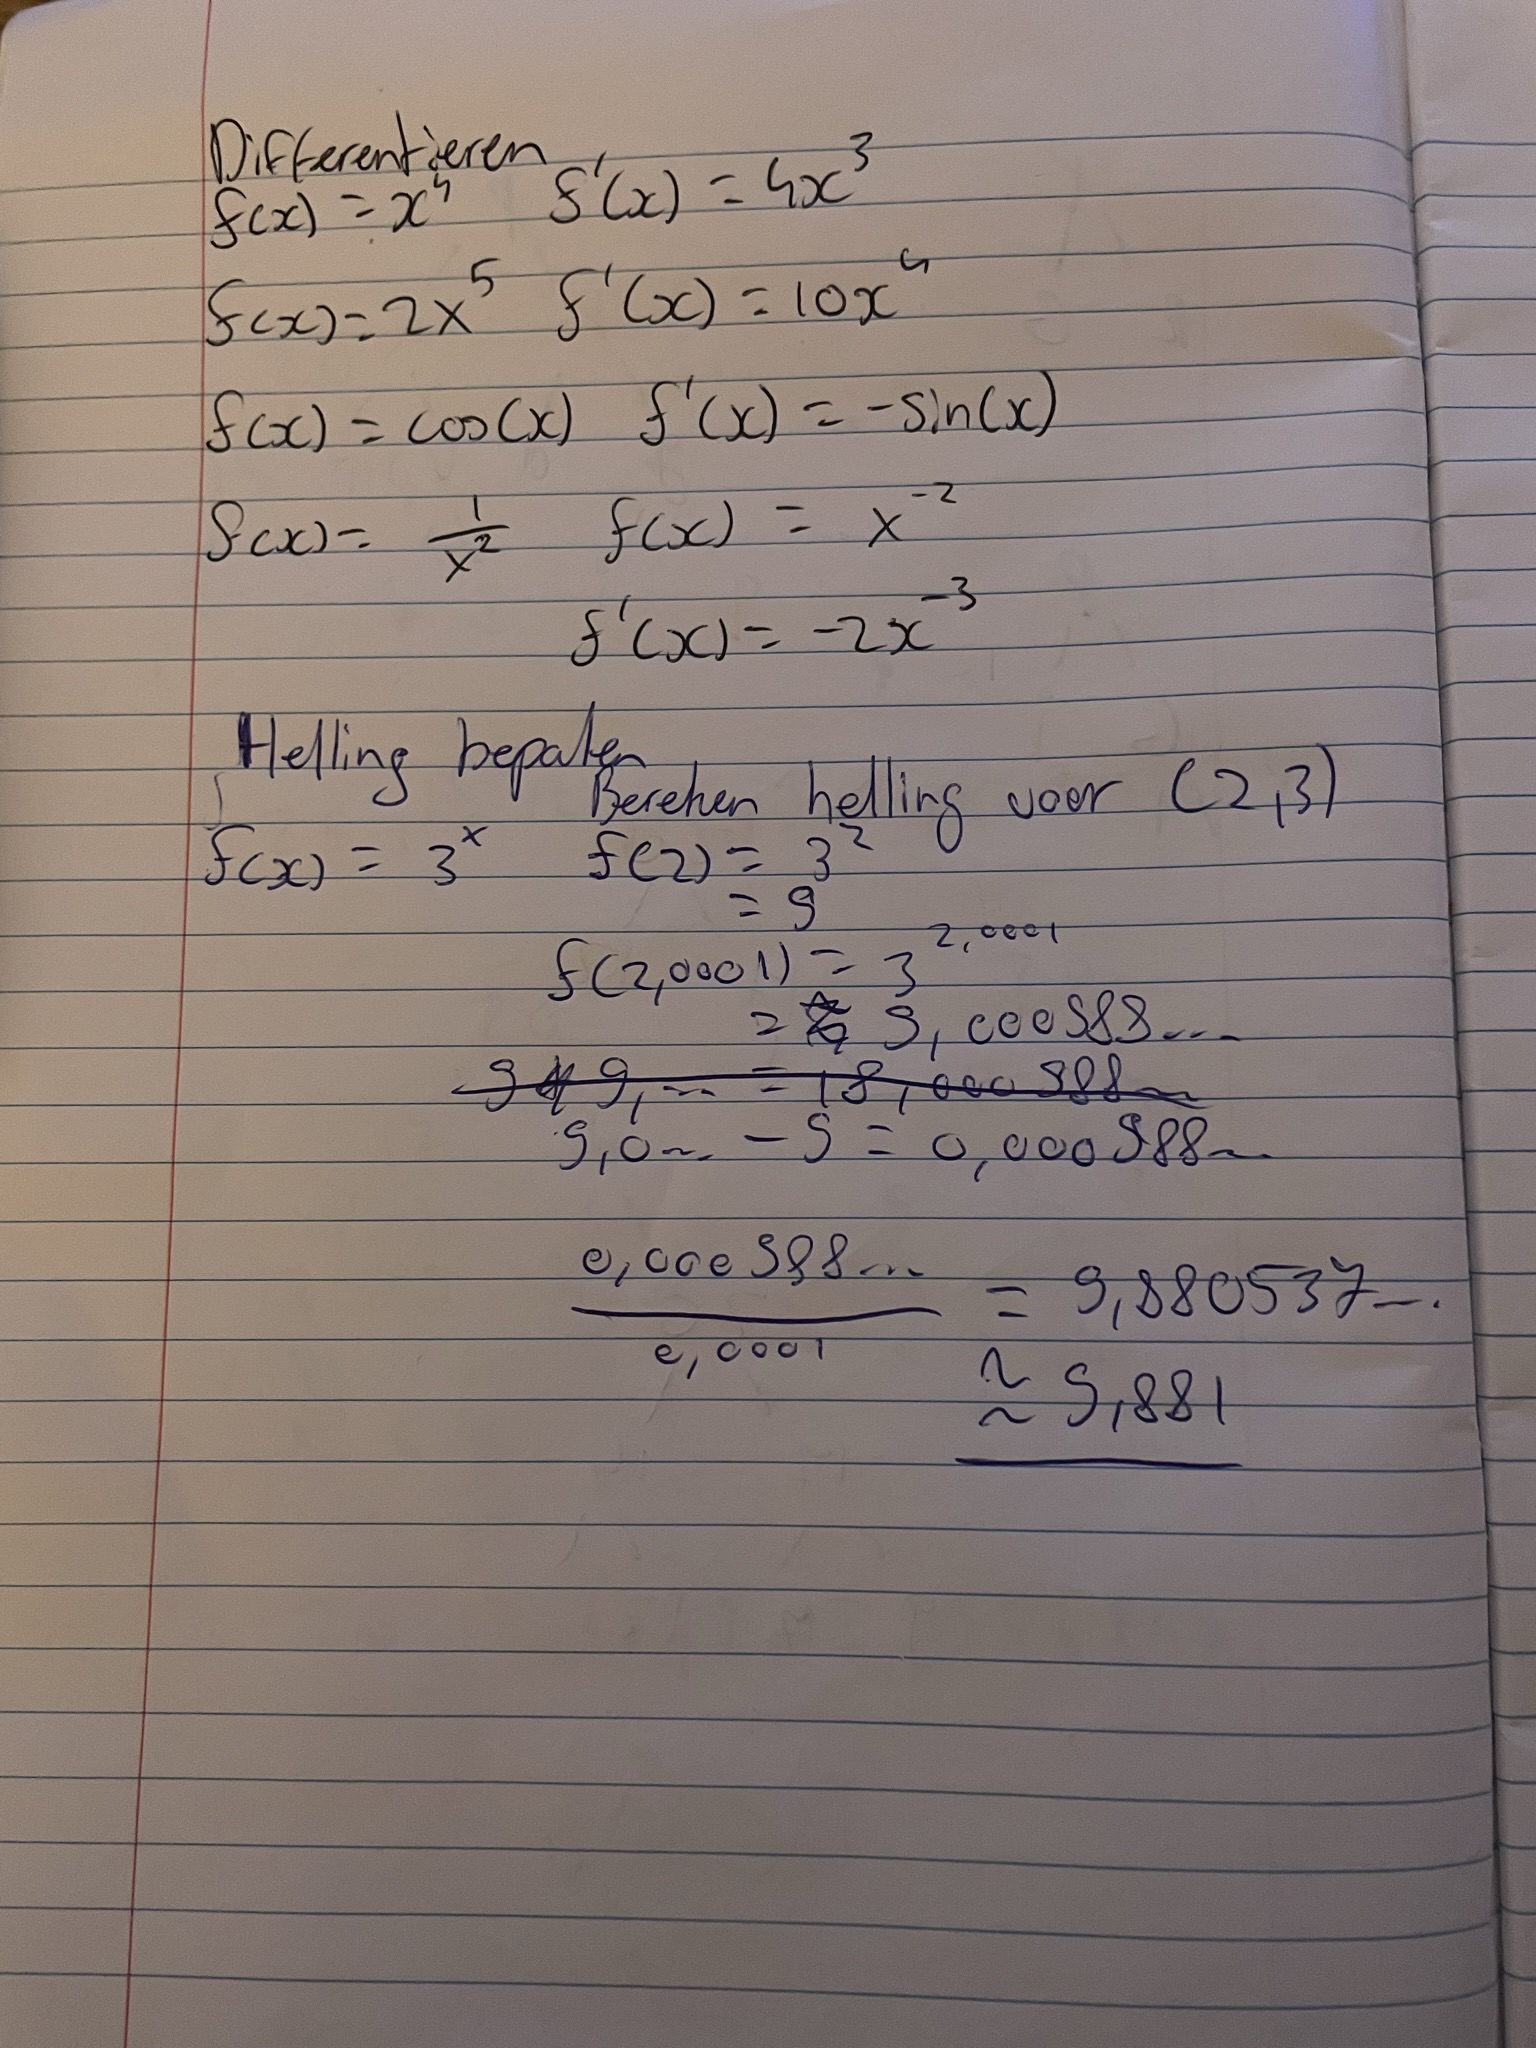 Differentieren
f(x) = x⁴ f'(x) = 4x³
f(x) = 2x⁵ f'(x) = 10x⁴
f(x) = cos(x) f'(x) = -sin(x)
f(x) = 1/x² f(x) = x⁻²
f'(x) = -2x⁻³
Helling bepalen
Bereken helling voor (2,3)
f(x) = 3ˣ f(2) = 3²
= 9
f(2,0001) = 3^2,0001
= 9,000988...
9 9,... = 18,000988...
9,0... - 9 = 0,000988...
0,000988... / 0,0001 = 9,880537...
≈ 9,881